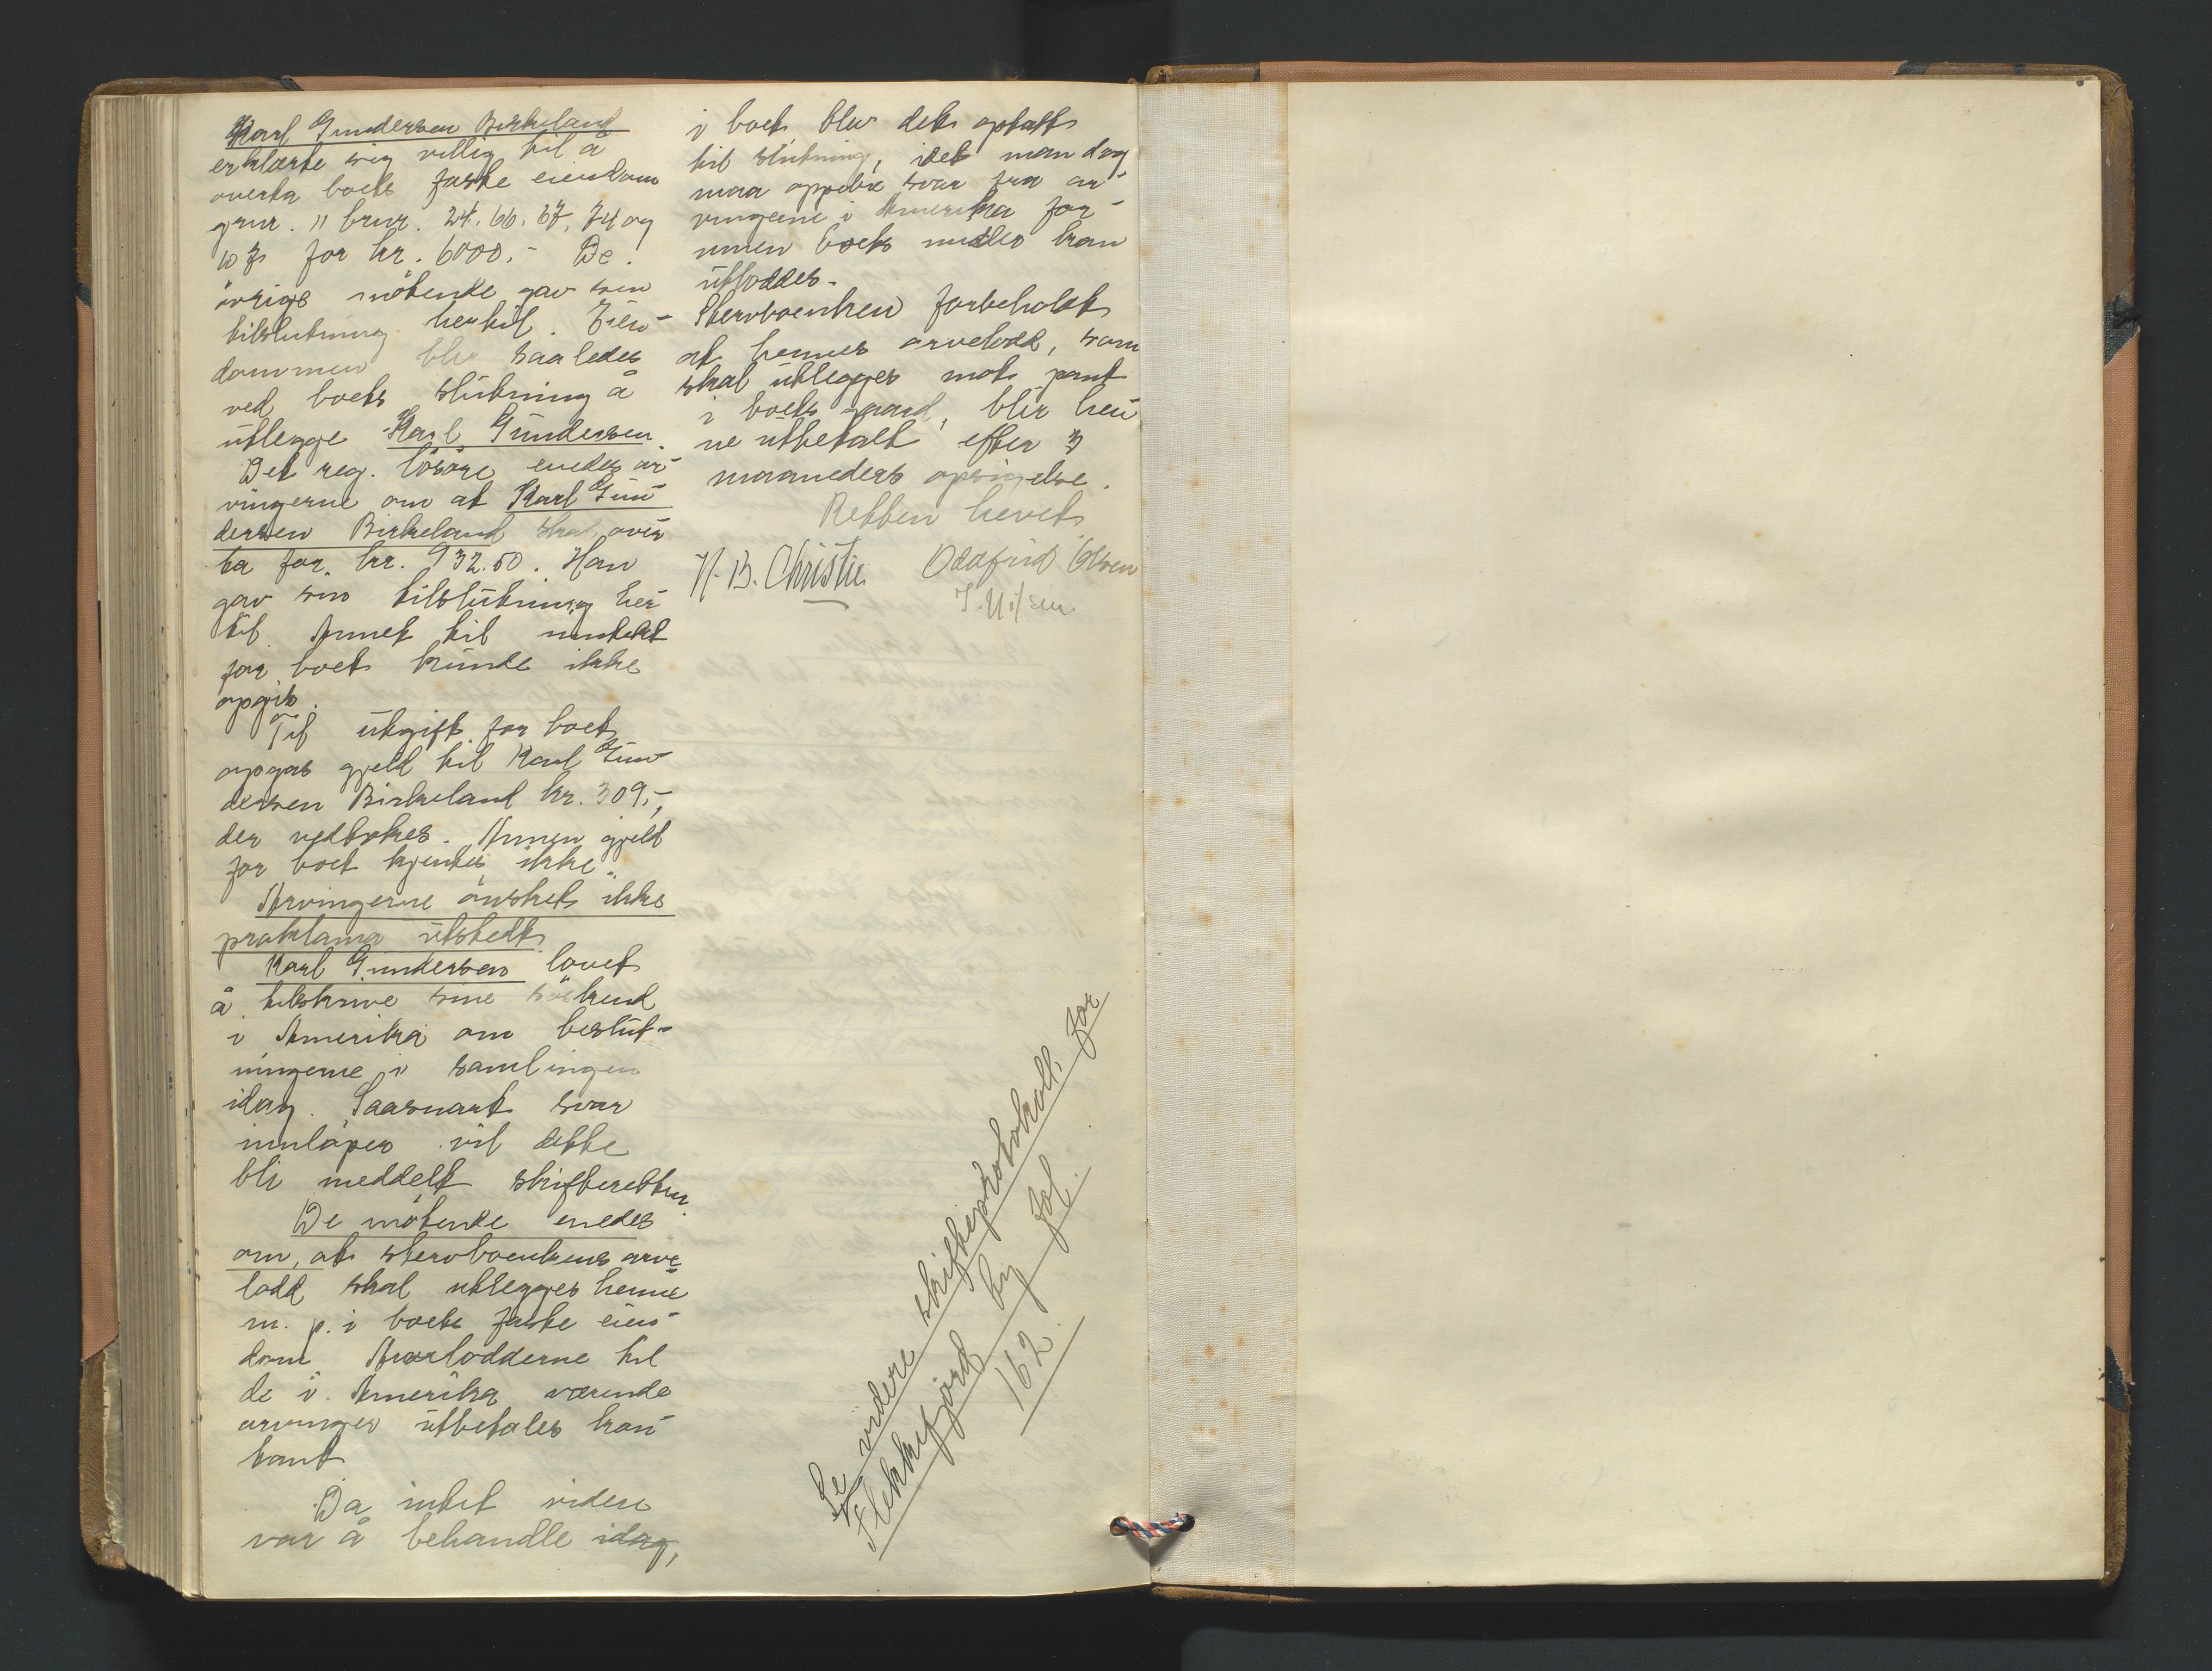 Karl Gundersen Birkeland
erklærte sig villig til å
overta boets faste eiendom
gnr. 11 brnr. 24. 66. 67, 74 og
for kr. 6000.- De
övrige mötende gav sin
tilslutning hertil. Eien-
dommen blir saaledes
ved boets slutning å
utlegge Karl Gundersen.
Det reg. lösöre enedes ar-
vingerne om at Karl Gun-
dersen Birkeland skal over
ta for kr. 932.50. Han
gav sin tilslutning her
til. Annet til inntekt
for boet kunde ikke
opgis.
Til utgift for boet
opgas gjeld til Karl Gun-
dersen Birkeland kr. 309,-,
der vedtokes. Annen gjeld
for boet kjentes ikke.
Arvingerne önsket ikke
proklama utstedt.
Karl Gundersen lovet
å tilskrive sine söskend
i Amerika om beslut-
ningerne i samlingen
idag. Saasnart svar
innlöper vil dette
bli meddelt skifteretten.
De mötende enedes
om, at stervboenkens arve
lodd skal utlegges henne
m. p. i boets faste eien-
dom. Arvelodderne til
de i Amerika værende
arvinger utbetales kon-
tant
Da intet videre
var å behandle idag,
i boet blev det optatt
til slutning, idet man dog
maa oppebie svar fra ar-
vingerne i Amerika for-
innen boets midler kan
utloddes.
Stervboenken forbeholdt
at hennes arvelodd, som
skal utlegges mot pant
i boets gaard, blir hen
ne utbetalt efter 3
maaneders opsigelse.
Retten hevet.
H. B. Christie Oddfrid Olsen
Se videre skifteprotokoll for
Flekkefjord by fol.
162.